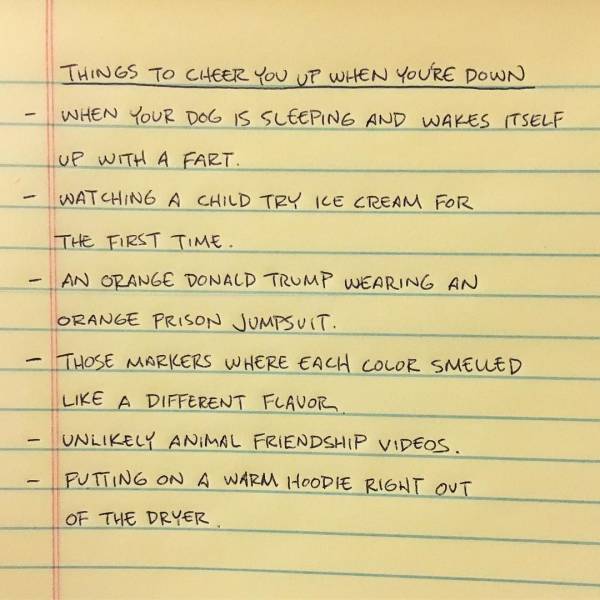 THINGS TO CHEER YOU UP WHEN YOU'RE DOWN
- WHEN YOUR DOG IS SLEEPING AND WAKES ITSELF
UP WITH A FART.
- WATCHING A CHILD TRY ICE CREAM FOR
THE FIRST TIME.
- AN ORANGE DONALD TRUMP WEARING AN
ORANGE PRISON JUMPSUIT.
- THOSE MARKERS WHERE EACH COLOR SMELLED
LIKE A DIFFERENT FLAVOR.
- UNLIKELY ANIMAL FRIENDSHIP VIDEOS.
- PUTTING ON A WARM HOODIE RIGHT OUT
OF THE DRYER.